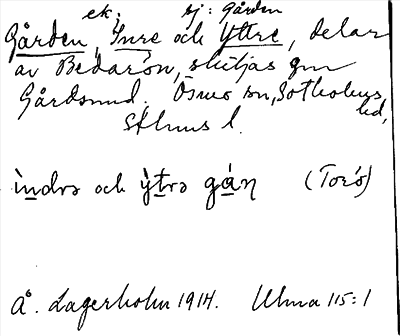 ek. sj: Gården
Gården, Inre och Yttre, delar
av Bedarön, skiljas gm
Gårdsund. Ösmo sn, Sotholms
hd,
Sthms l.
ìndrə och ỳtrə gán (Torö)
Å. Lagerholm 1914. Ulma 115:1